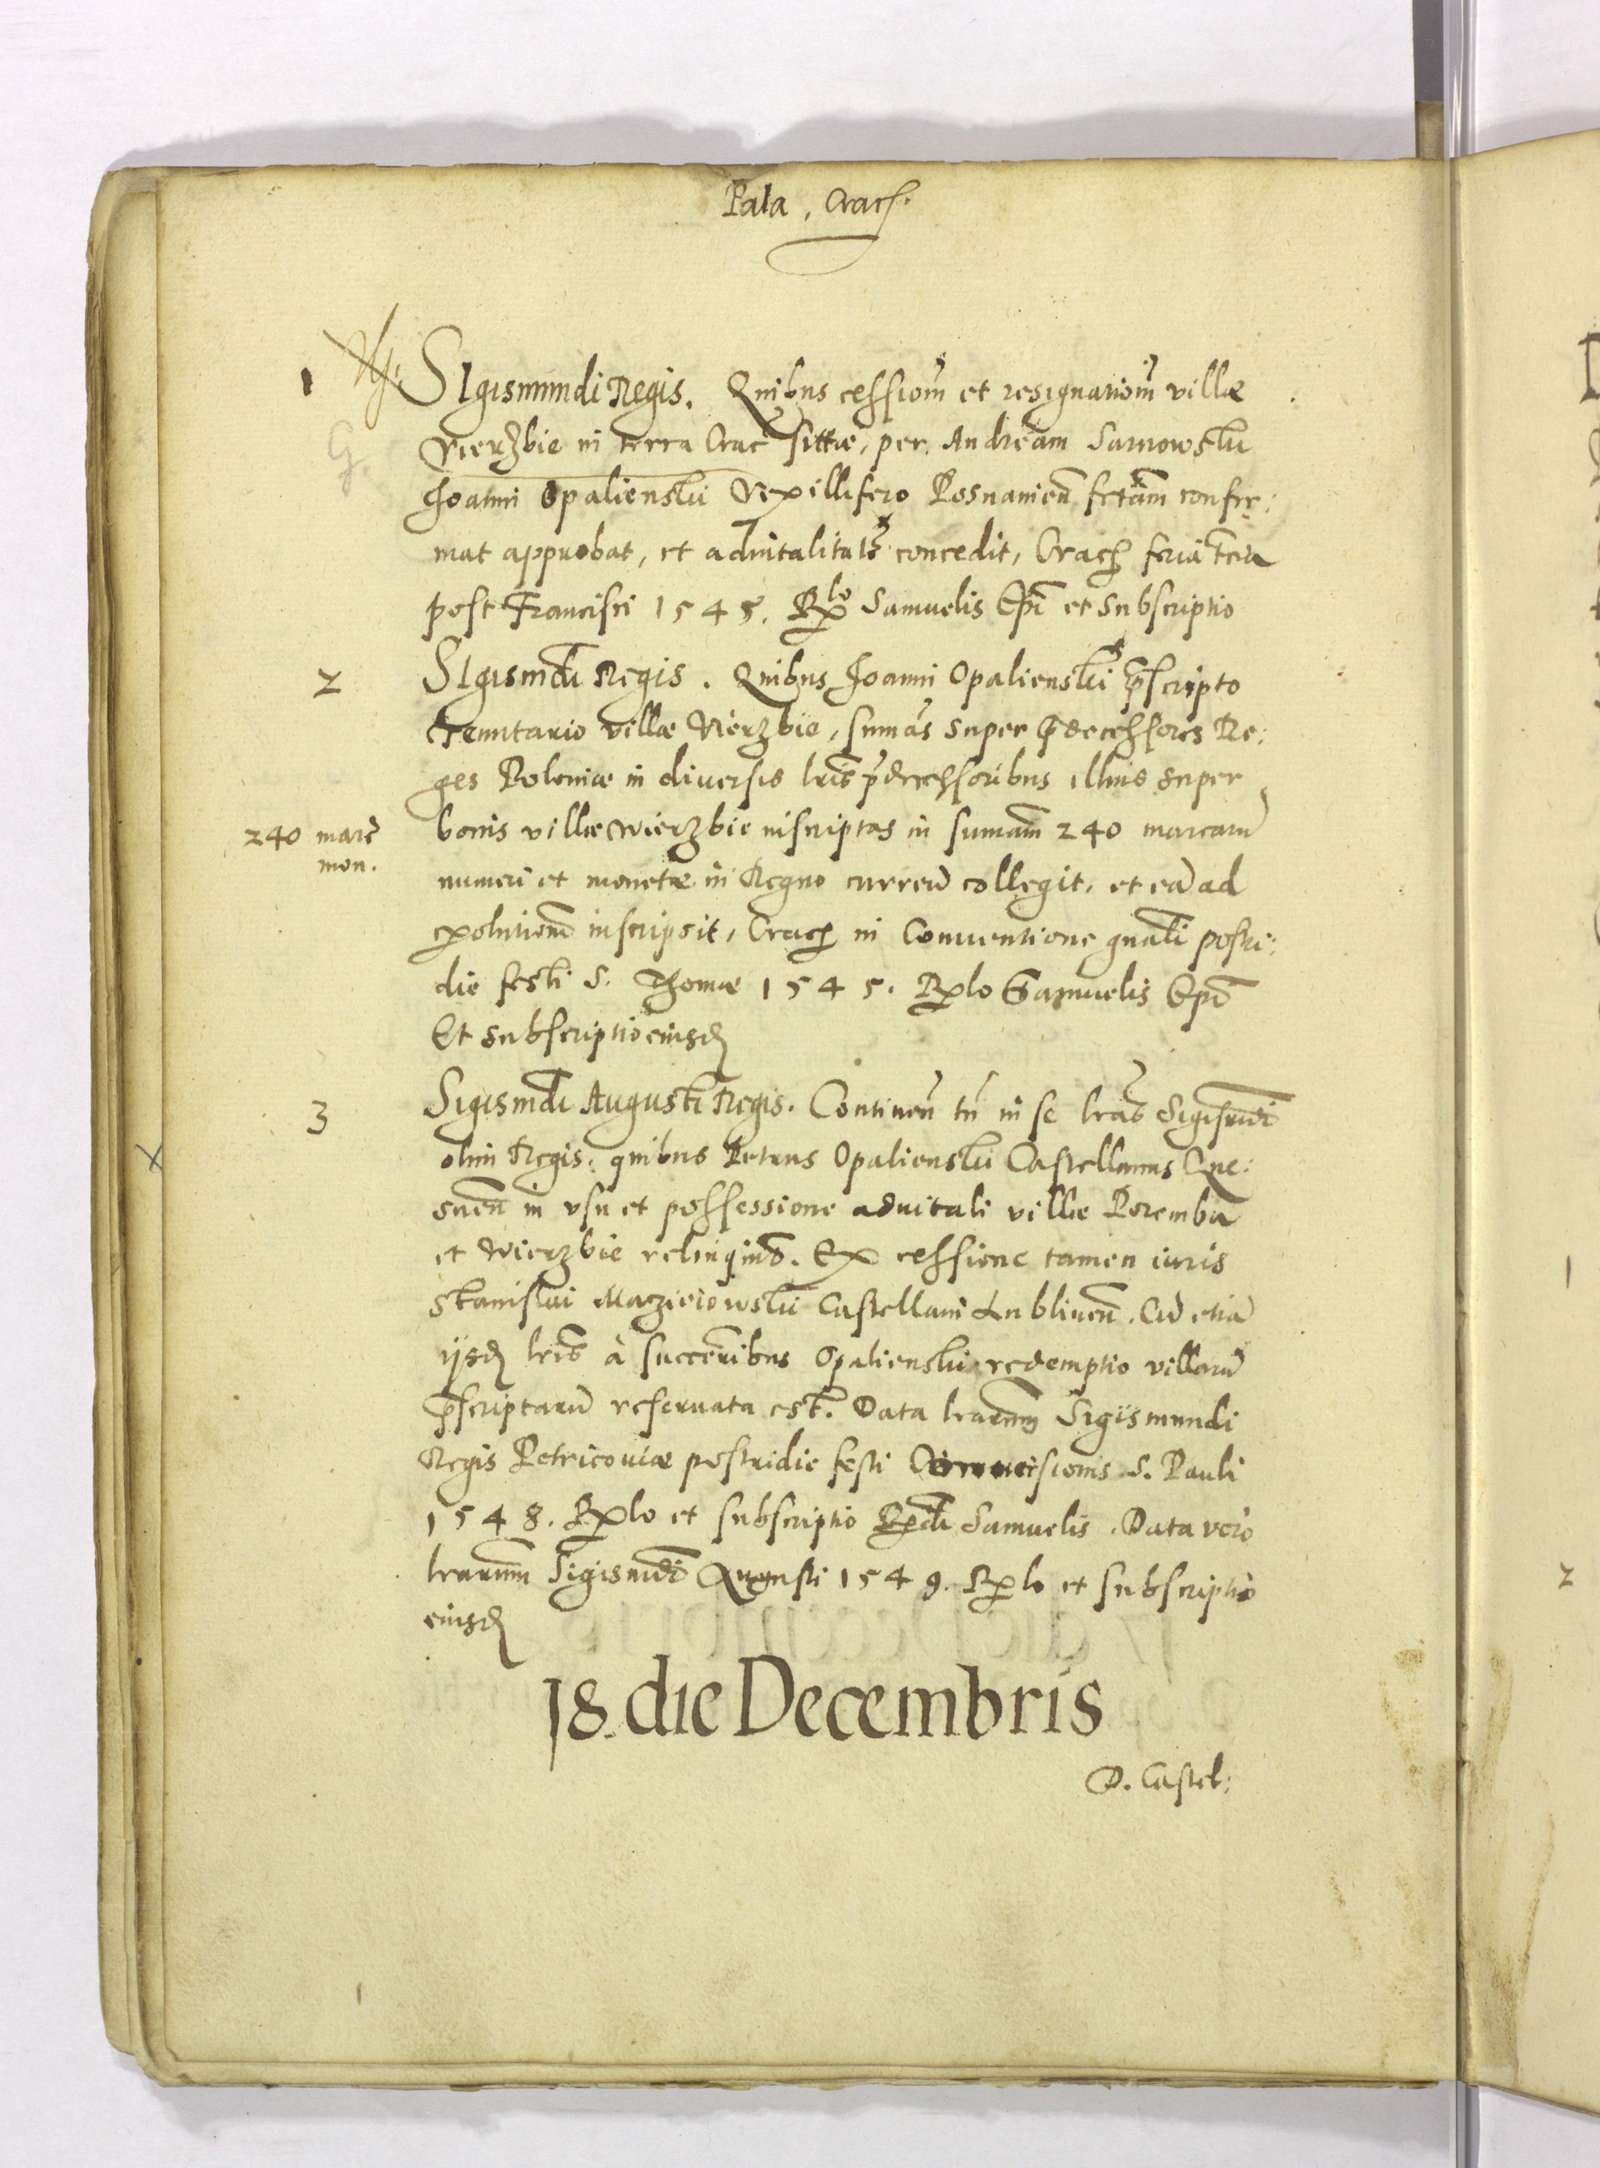 Pala. Crach.
1 SIgismundi Regis. Quibus cessionẽ et resignationẽ villæ
Vierzbie in terra Crac̃ sittæ, per Andream Sarnowsky
Joanni Opaliensky Vexillifero Posnanieñ fctãm confir:
mat approbat, et aduitalitatẽ concedit, Crach feria tertia
post Francisci 1545. Rx̃lo Samuelis Ep̃i et Subscriptio
2 SIgismũdi Regis. Quibus Joanni Opaliensky p̃scripto
Tenutario villæ Vierzbie, sumãs super p̃decessores Re:
ges Poloniæ in diuersis lr̃is p̃decessoribus illius super
240 marc̃
mon.
bonis villæ Wierzbie inscriptas in sumam̃ 240 marcarũ
numeri et monetæ in Regno curreñ collegit, et eã ad
exolutionẽ inscripsit, Crach in Conuentione gñali postri:
die festi S. Thomæ 1545. Rx̃lo Samuelis Ep̃i
Et subscriptio eiusd
3 Sigismũdi Augusti Regis. Contineñ tñ in se lr̃as Sigismũdi
olim Regis: quibus Petrus Opaliensky Castellanus Gne:
sneñ in vsu et possessione aduitali villæ Poremba
et Wierzbie relinquit̃. Ex cessione tamen iuris
Stanislai Macziejowsky Castellani Lublineñ. Cũ etiã
ijsd lr̃is à succes̃oribus Opaliensky redemptio villarũ
p̃scriptarũ reseruata est. Data lr̃arum Sigismundi
Regis Petricouiæ postridie festi Conuersionis S. Pauli
1548. Rx̃lo et subscriptio Rx̃di Samuelis. Data vero
lr̃arum Sigismũdi Augusti 1549. Rx̃lo et subscriptio
eiusd
18. die Decembris
D. Castel:
2